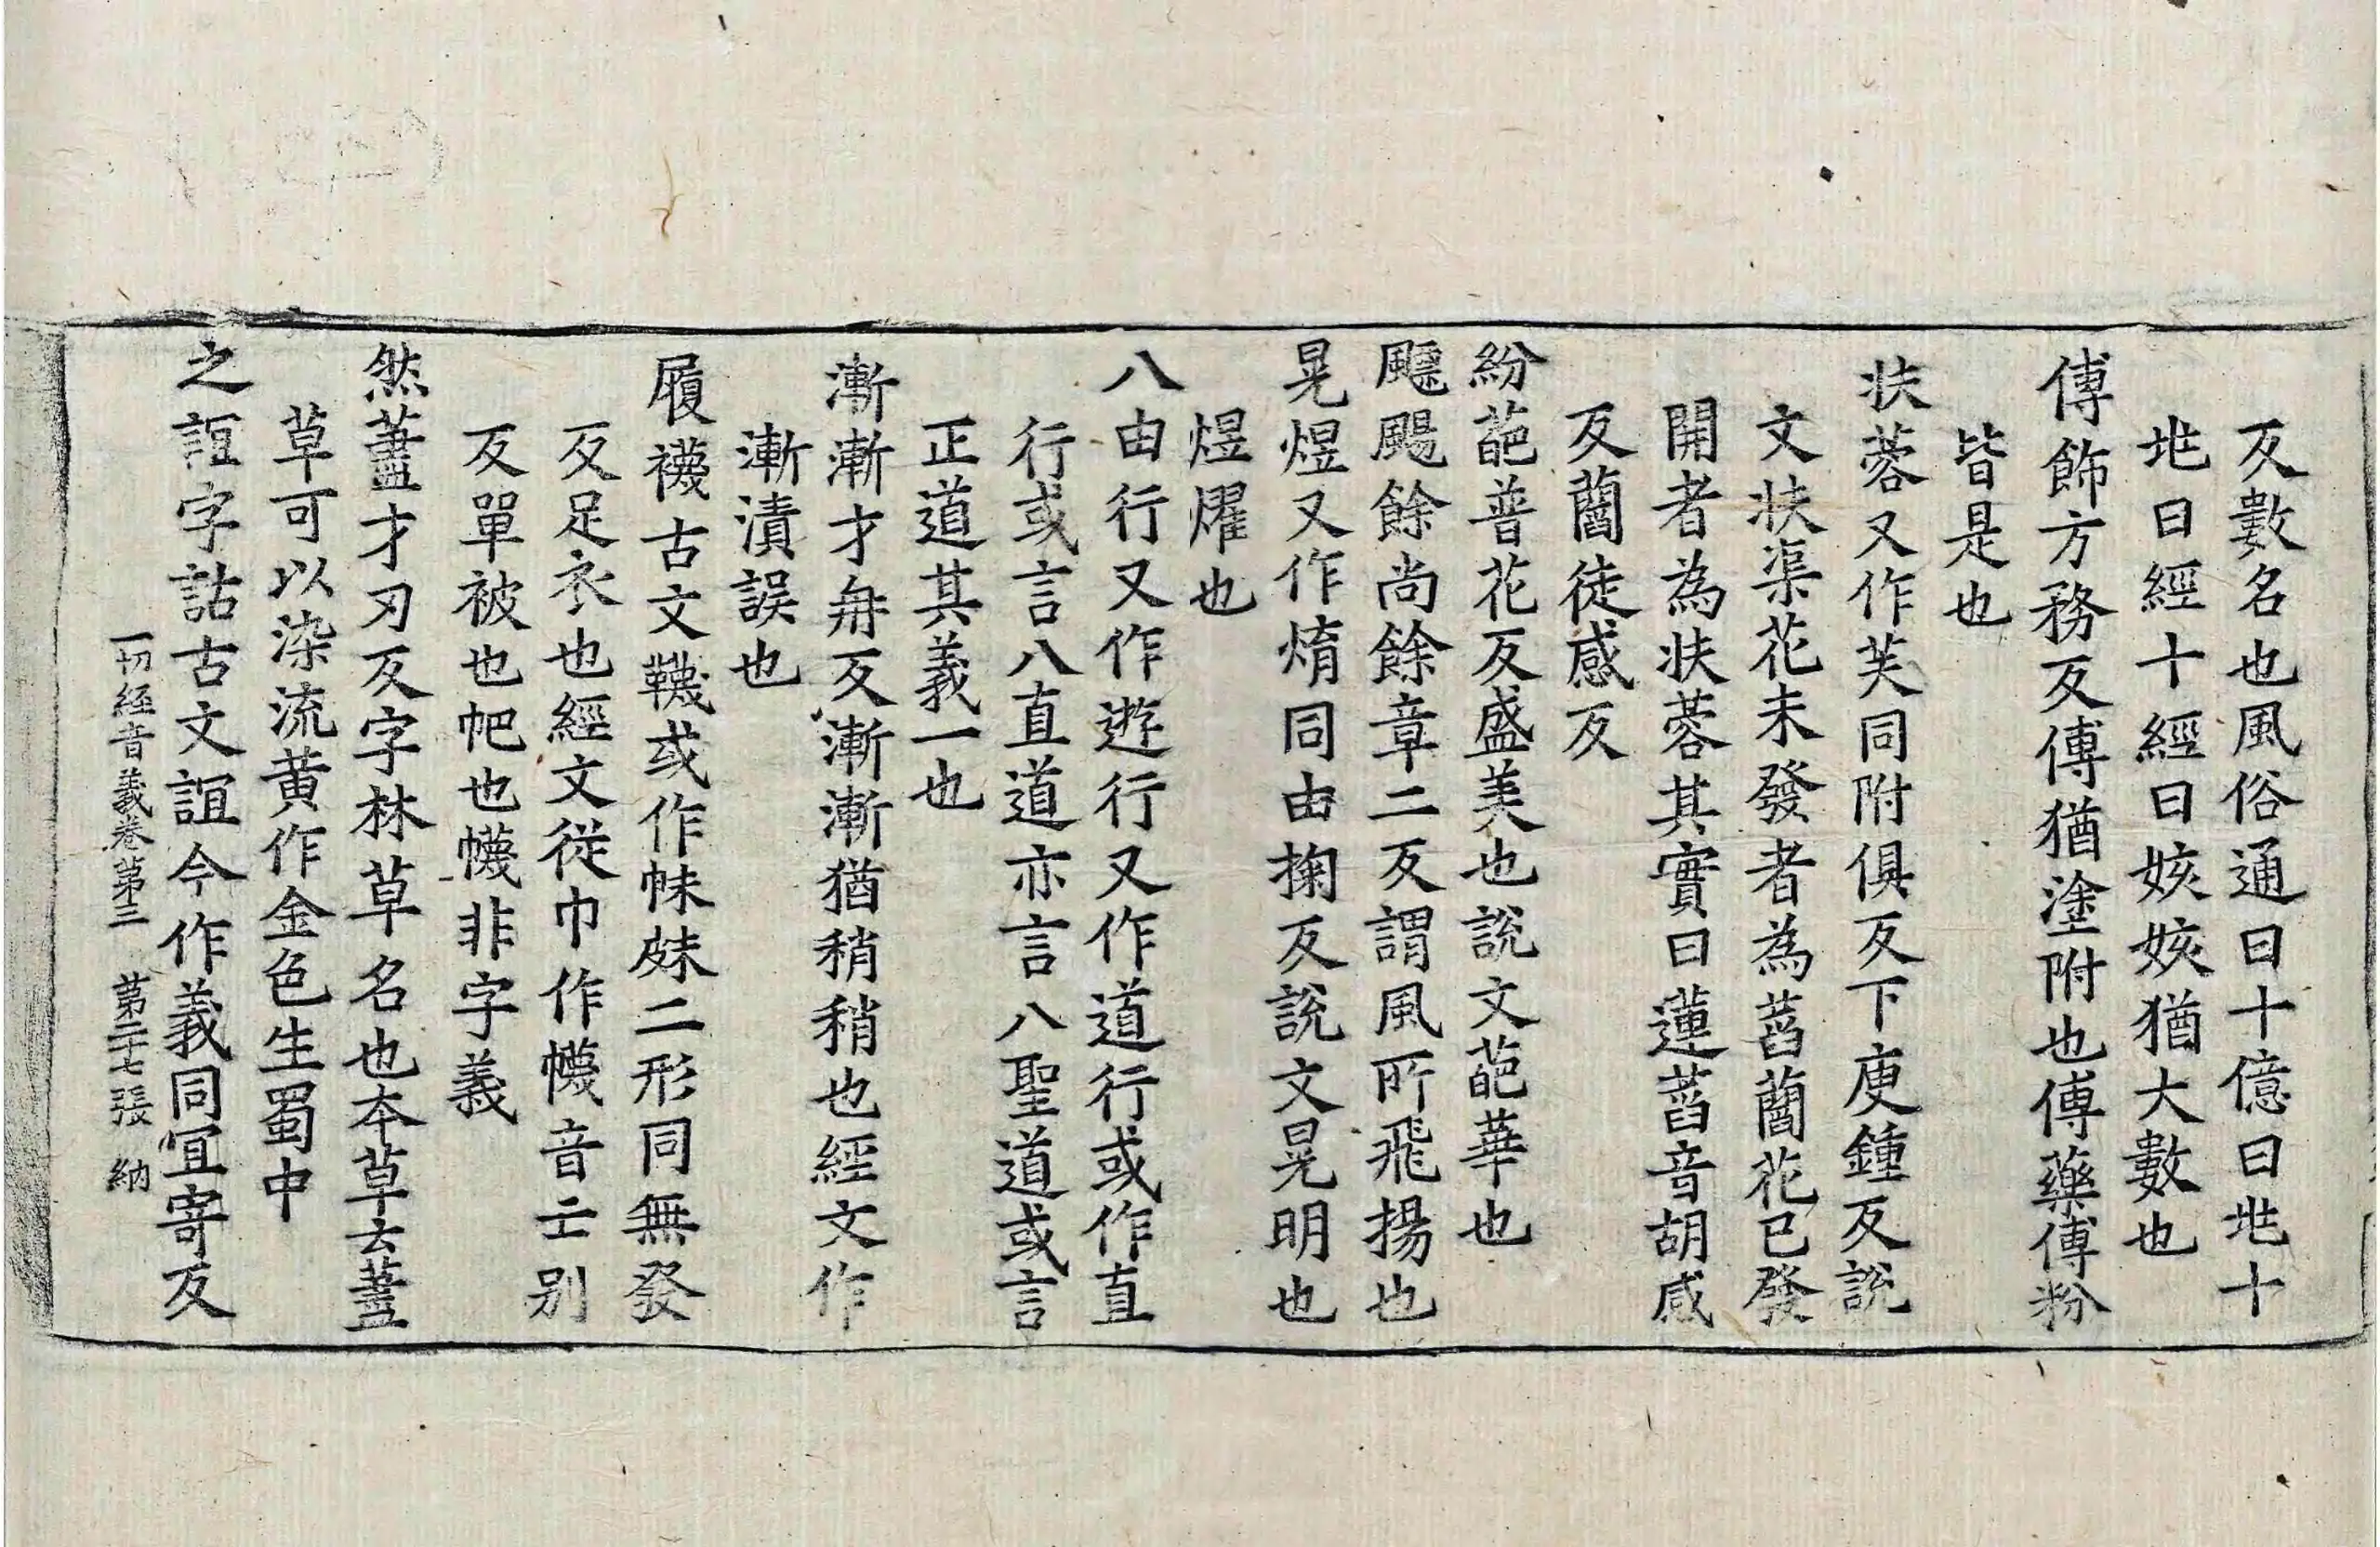 反數名也風俗通曰十億曰兆十
兆曰經十經曰姟姟猶大數也
傅飾方務反傅猶塗附也傅藥傅粉
皆是也
扶蓉又作芙同附俱反下庾鍾反說
文扶渠花未發者為菡䕞花已發
開者為扶蓉其實曰蓮菡音胡感
反䕞徒感反
紛葩普花反盛美也說文葩華也
飃颺餘尚餘章二反謂風所飛揚也
晃煜又作焴同由掬反說文晃明也
煜燿也
八由行又作遊行又作道行或作直
行或言八直道亦言八聖道或言
正道其義一也
漸漸才冉反漸漸猶稍稍也經文作
漸漬誤也
履襪古文韈或作帓𩎟二形同無發
反足衣也經文從巾作幭音亡別
反單被也帊也幭非字義
然藎才刃反字林草名也本草云藎
草可以染流黃作金色生蜀中
之誼字詁古文誼今作義同冝寄反
一切經音義卷第三　第二十七張　納